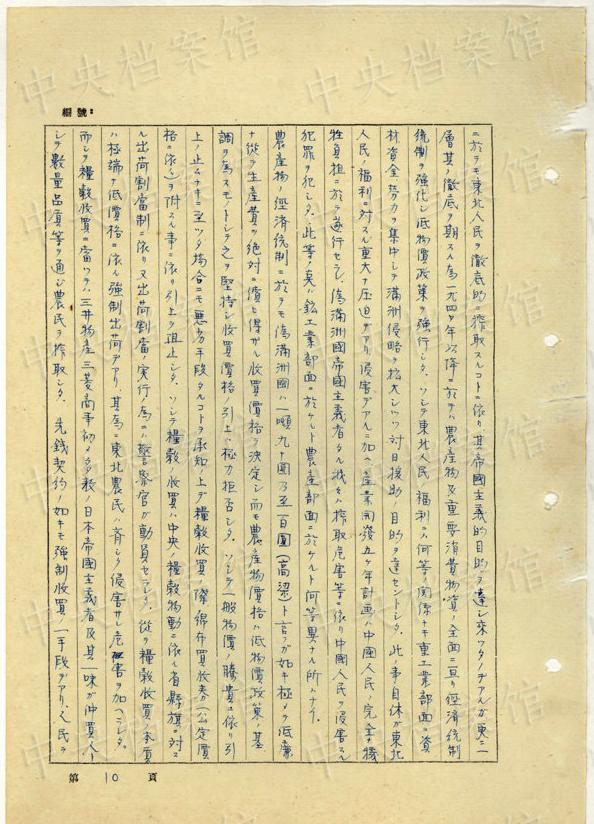 中央档案馆
編號：
ニ於テモ東北人民ヲ徹底的ニ搾取スルコトニ依リ其帝國主義的目的ヲ達シ来ツタノデアルガ更ニ一
層其ノ徹底ヲ期スル為一九四 年以降ニ於テハ農産物及重要消費物資ノ全面ニ亘リ経済統制
統制ヲ強化シ低物價政策ヲ強行シタ。ソシテ東北人民ノ福利ニハ何等ノ関係ナキ重工業部面ニ資
材資金労力ヲ集中シテ満洲侵略ヲ拡大シツツ対日援助ノ目的ヲ達セントシタ。此ノ事自体が東北
人民ノ福利ニ対スル重大ナ圧迫デアリ侵害デアルニ加ヘ産業開発五ヶ年計画ハ中國人民ノ完全ナ犠
牲負担ニ於テ遂行セラレ偽満洲國帝國主義者タル我々ハ搾取危害等ニ依リ中國人民ヲ侵害スル
犯罪ヲ犯シタ。此等ノ奌ハ鉱工業部面ニ於ケルト農産部面ニ於ケルト何等異ナル所ハナイ。
農産物ノ経済統制ニ於テモ偽満洲國ハ一噸九十圓乃至百圓(高粱)ト言フガ如キ極メテ低廉
ナ従テ生産費ヲ絶対ニ償ヒ得ザル収買價格ヲ決定シ而モ農産物價格ハ低物價政策ノ基
調ヲ為スモノトシテ之ヲ堅持シ収買價格ノ引上ハ極力拒否シタ。ソシテ一般物價ノ騰貴ニ依リ引
上ノ止ムナキニ至ツタ場合ニモ悪劣手段タルコトヲ承知ノ上デ糧穀収買ノ際綿布買収券(公定價
格ニ依ル)ヲ附スル事ニ依リ引上ヲ阻止シタ。ソシテ糧穀収買ハ中央ノ糧穀物動ニ依ル省縣旗ニ対ス
ル出荷割當制ニ依リ又出荷割當ノ実行ノ為ニハ警察官が動員セラレタ。従テ糧穀収買ノ本質
ハ極端ナ低價格ニ依ル強制出荷デアリ、其為ニ東北農民ニハ 侵害サレ危害ヲ加ヘラレタ。
而シテ糧穀収買ニ當ツテハ三井物産三菱商事初メ多数ノ日本帝國主義者及其ノ一味ガ仲買人ト
シテ数量品質等ヲ通ジ農民ヲ搾取シタ。 先銭契約ノ如キモ強制収買ノ一手段デアリ、人民ヲ
第 10 頁